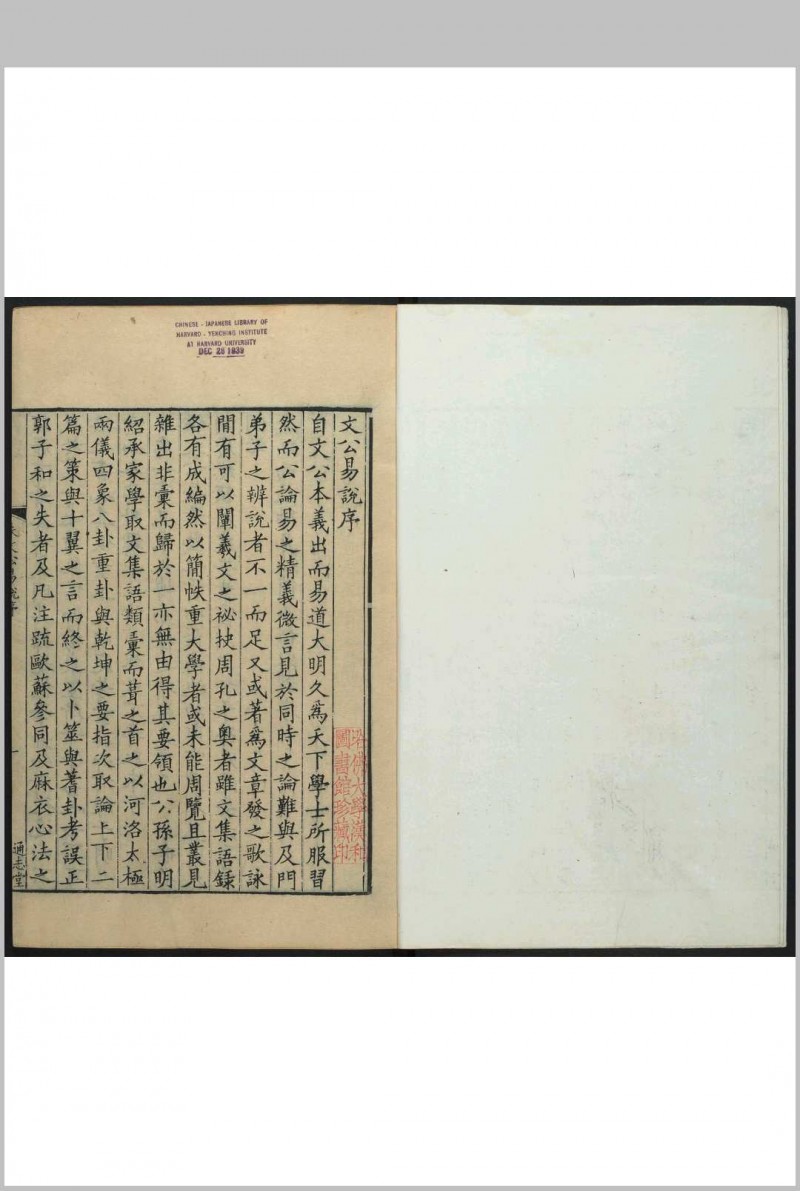 CHINESE - JAPANESE LIBRARY OF
HARVARD - YENCHING INSTITUTE
AT HARVARD UNIVERSITY
DEC 28 1939
文公易說序
自文公本義出而易道大明久爲天下學士所服習
然而公論易之精義微言見於同時之論難與及門
弟子之辨說者不一而足又或著爲文章發之歌詠
閒有可以闡羲文之祕抉周孔之奧者雖文集語錄
各有成編然以簡帙重大學者或未能周覽且叢見
雜出非彚而歸於一亦無由得其要領也公孫子明
紹承家學取文集語類彚而葺之首之以河洛太極
兩儀四象八卦重卦與乾坤之要指次取論上下二
篇之策與十翼之言而終之以卜筮與蓍卦考誤正
郭子和之失者及凡注疏歐蘇參同及麻衣心法之
朱文公易說序
一
通志堂
哈佛大學漢和
圖書館珍藏印